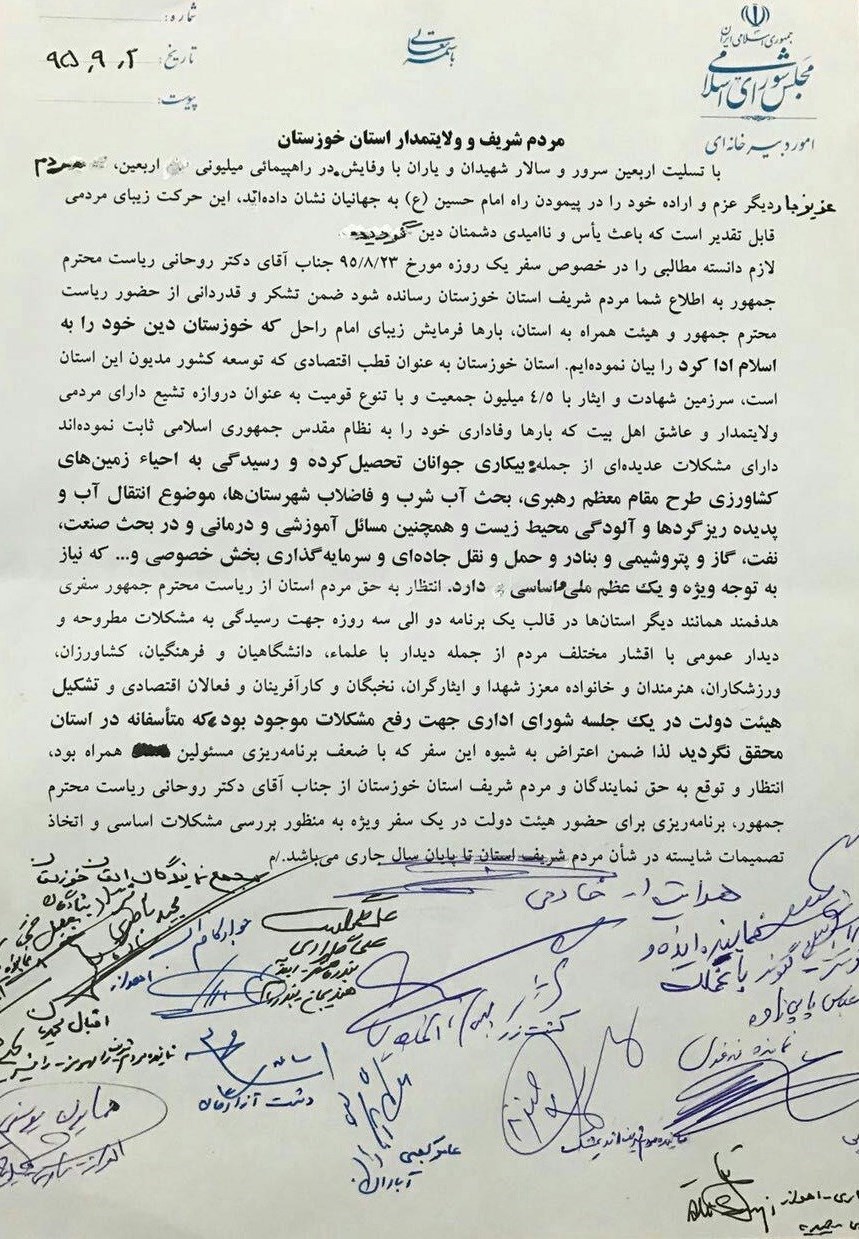 باسمه تعالی
جمهوری اسلامی ایران
مجلس شورای اسلامی
امور دبیرخانه‌ای
شماره:
تاریخ: ۹۵,۹,۲
پیوست:
مردم شریف و ولایتمدار استان خوزستان
با تسلیت اربعین سرور و سالار شهیدان و یاران با وفایش در راهپیمائی میلیونی اربعین، مردم
عزیز بار دیگر عزم و اراده خود را در پیمودن راه امام حسین (ع) به جهانیان نشان داده‌اند، این حرکت زیبای مردمی
قابل تقدیر است که باعث یأس و ناامیدی دشمنان دین گردیده
لازم دانسته مطالبی را در خصوص سفر یک روزه مورخ ۹۵/۸/۲۳ جناب آقای دکتر روحانی ریاست محترم
جمهور به اطلاع شما مردم شریف استان خوزستان رسانده شود ضمن تشکر و قدردانی از حضور ریاست
محترم جمهور و هیئت همراه به استان، بارها فرمایش زیبای امام راحل که خوزستان دین خود را به
اسلام ادا کرد را بیان نموده‌ایم. استان خوزستان به عنوان قطب اقتصادی که توسعه کشور مدیون این استان
است، سرزمین شهادت و ایثار با ۴/۵ میلیون جمعیت و با تنوع قومیت به عنوان دروازه تشیع دارای مردمی
ولایتمدار و عاشق اهل بیت که بارها وفاداری خود را به نظام مقدس جمهوری اسلامی ثابت نموده‌اند
دارای مشکلات عدیده‌ای از جمله: بیکاری جوانان تحصیل‌کرده و رسیدگی به احیاء زمین‌های
کشاورزی طرح مقام معظم رهبری، بحث آب شرب و فاضلاب شهرستان‌ها، موضوع انتقال آب و
پدیده ریزگردها و آلودگی محیط زیست و همچنین مسائل آموزشی و درمانی و در بحث صنعت،
نفت، گاز و پتروشیمی و بنادر و حمل و نقل جاده‌ای و سرمایه‌گذاری بخش خصوصی و... که نیاز
به توجه ویژه و یک عظم ملی اساسی دارد. انتظار به حق مردم استان از ریاست محترم جمهور سفری
هدفمند همانند دیگر استان‌ها در قالب یک برنامه دو الی سه روزه جهت رسیدگی به مشکلات مطروحه و
دیدار عمومی با اقشار مختلف مردم از جمله دیدار با علماء، دانشگاهیان و فرهنگیان، کشاورزان،
ورزشکاران، هنرمندان و خانواده معزز شهدا و ایثارگران، نخبگان و کارآفرینان و فعالان اقتصادی و تشکیل
هیئت دولت در یک جلسه شورای اداری جهت رفع مشکلات موجود بود که متأسفانه در استان
محقق نگردید لذا ضمن اعتراض به شیوه این سفر که با ضعف برنامه‌ریزی مسئولین همراه بود،
انتظار و توقع به حق نمایندگان و مردم شریف استان خوزستان از جناب آقای دکتر روحانی ریاست محترم
جمهور، برنامه‌ریزی برای حضور هیئت دولت در یک سفر ویژه به منظور بررسی مشکلات اساسی و اتخاذ
تصمیمات شایسته در شأن مردم شریف استان تا پایان سال جاری می‌باشد./م
مجمع نمایندگان استان خوزستان
هدایت اله خادمی
نماینده ایذه و باغملک
عباس پاپی زاده
نماینده دزفول
علی گلمرادی
جواد کاظم
اهواز
اقبال محمدیان
دشت آزادگان
عامر کعبی
آبادان
همایون یوسفی